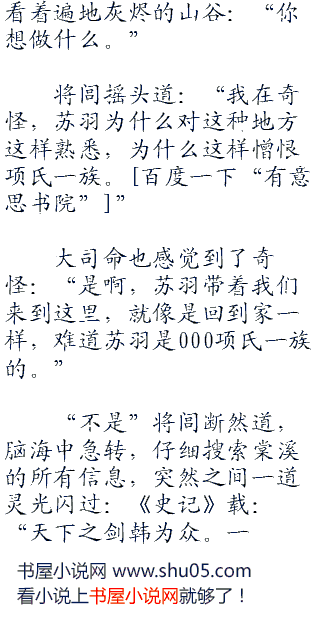 看着遍地灰烬的山谷：“你
想做什么。”
将闾摇头道：“我在奇
怪，苏羽为什么对这种地方
这样熟悉，为什么这样憎恨
项氏一族。[百度一下“有意
思书院”]”
大司命也感觉到了奇
怪：“是啊，苏羽带着我们
来到这里，就像是回到家一
样，难道苏羽是000项氏一族
的。”
“不是”将闾断然道，
脑海中急转，仔细搜索棠溪
的所有信息，突然之间一道
灵光闪过：《史记》载：
“天下之剑韩为众。一
书屋小说网 www.shu05.com
看小说上书屋小说网就够了！